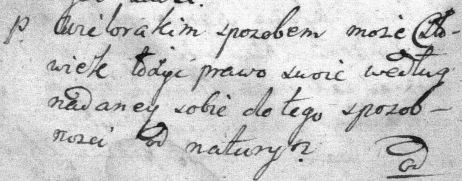 P. Wielorakim sposobem może Czło-
wiek łożyć prawo swoie według
nadaney sobie do tego sposob-
nosci od natury?
Od